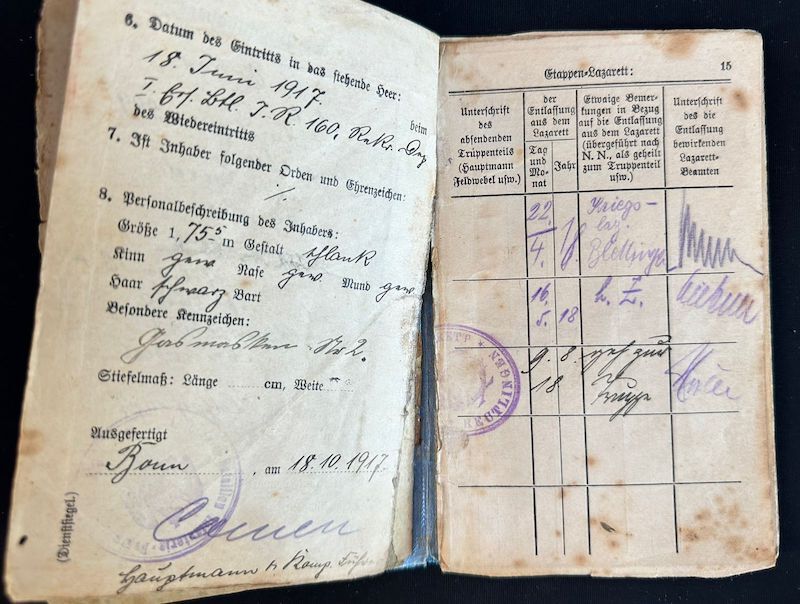 6. Datum des Eintritts in das stehende Heer:
18. Juni 1917. beim
I. Ers. Btl. I. R 160, Rekr. Dep
des Wiedereintritts
7. Ist Inhaber folgender Orden und Ehrenzeichen:
./.
8. Personalbeschreibung des Inhabers:
Größe 1,75⁵ m Gestalt schlank
Kinn gew Nase gew. Mund gew.
Haar schwarz Bart
Besondere Kennzeichen:
Gasmasken Nr 2.
Stiefelmaß: Länge cm, Weite
Ausgefertigt
Bonn, am 18.10.1917.
(Dienstsiegel.)
Hauptmann u Komp. Führer
Etappen-Lazarett:
15
Unterschrift des absendenden Truppenteils (Hauptmann Feldwebel usw.)
der Entlassung aus dem Lazarett
Tag und Mo-nat
Jahr
Etwaige Bemer-
kungen in Bezug
auf die Entlassung
aus dem Lazarett
(übergeführt nach
N. N., als geheilt
zum Truppenteil
usw.)
Unterschrift des die Entlassung bewirkenden Lazarett-Beamten
22. Kriegs-
4. 18. laz.
16.
5. 18
9. 8. geh zur
18 Truppe
REUTLINGEN